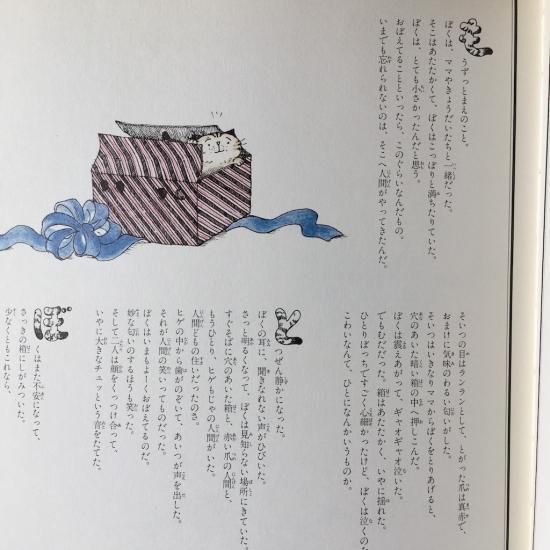 とうずっとまえのこと。
ぼくは、ママやきょうだいたちと一緒だった。
そこはあたたかくて、ぼくはこっぽりと満ちたりていた。
ぼくは、とても小さかったんだと思う。
おぼえてることといったら、このぐらいなんだもの。
いまでも忘れられないのは、そこへ人間がやってきたんだ。
そいつの目はランランとして、とがった爪は真赤で、
おまけに気味のわるい匂いがした。
そいつはいきなりママからぼくをとりあげると、
穴のあいた暗い箱の中へ押しこんだ。
ぼくは震えあがって、ギャオギャオ泣いた。
でもむだだった。箱はあたたかく、いやに揺れた。
ひとりぼっちですごく心細かったけど、ぼくは泣くのな
こわいなんて、ひとになんかいうものか。
とつぜん静かになった。
ぼくの耳に、聞きなれない声がひびいた。
さっと明るくなって、ぼくは見知らない場所にきていた。
すぐそばに穴のあいた箱と、赤い爪の人間と、
もうひとり、ヒゲもじゃの人間がいた。
人間どもの住いだったのさ。
ヒゲの中から歯がのぞいて、あいつが声を出した。
それが人間の笑いってものだった。
ぼくはいまもよーくおぼえてるのだ。
妙な匂いのするほうも笑った。
そして二人は顔をくっつけ合って、
いやに大きなチュッという音をたてた。
ぼくはまた不安になって、
さっきの箱にしがみついた。
少なくともこれなら、